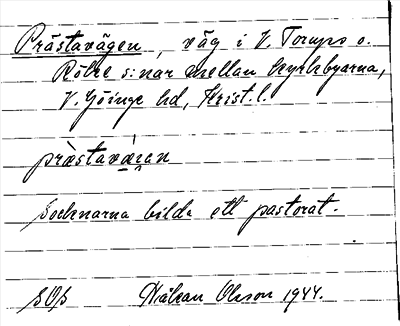 Prästavägen, väg i V. Torups o.
Rölre s:nar mellan kyrkbyarna,
V. Göinge hd, Krist. l.
prästavä̱i̯an
socknarna bilda ett pastorat.
Håkan Olsson 1944.